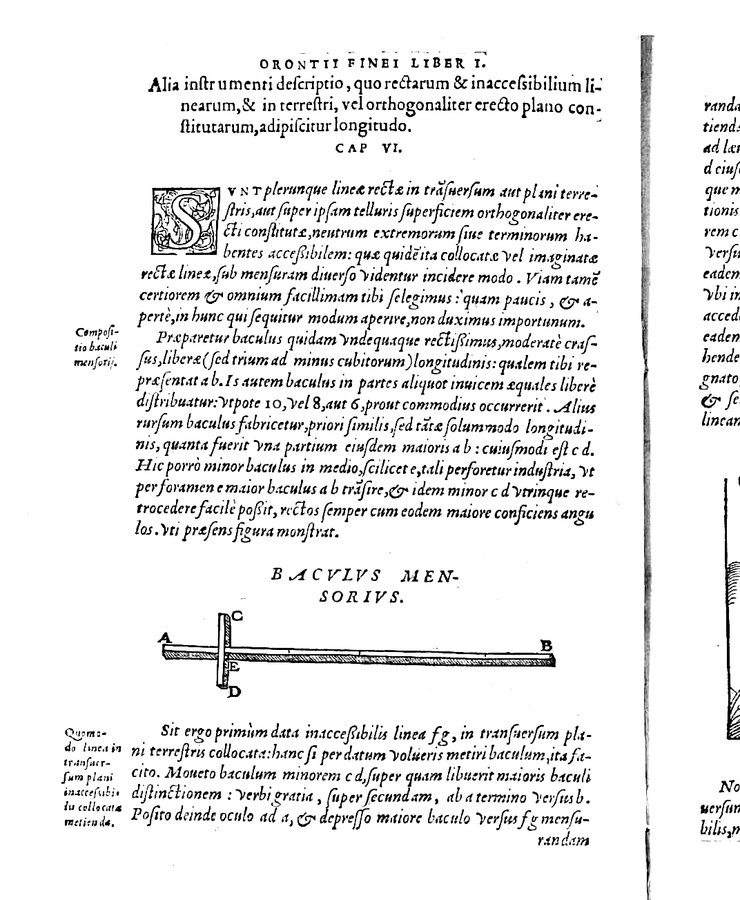 ORONTII FINEI LIBER I.
Alia instrumenti descriptio, quo rectarum & inaccessibilium li-
nearum, & in terrestri, vel orthogonaliter erecto plano con-
stitutarum, adipiscitur longitudo.
CAP VI.
SVNT plerunque lineæ rectæ in trãsuersum aut plani terre-
stris, aut super ipsam telluris superficiem orthogonaliter ere-
cti constitutæ, neutrum extremorum siue terminorum ha-
bentes accessibilem: quæ quidẽ ita collocatæ vel imaginatæ
rectæ lineæ, sub mensuram diuerso videntur incidere modo. Viam tamẽ
certiorem & omnium facillimam tibi selegimus: quam paucis, & a-
pertè, in hunc qui sequitur modum aperire, non duximus importunum.
Composi-
tio baculi
mensorij.
Præparetur baculus quidam vndequaque rectissimus, moderatè cras-
sus, liberæ (sed trium ad minus cubitorum) longitudinis: qualem tibi re-
præsentat a b. Is autem baculus in partes aliquot inuicem æquales liberè
distribuatur: vtpote 10, vel 8, aut 6, prout commodius occurrerit. Alius
rursum baculus fabricetur, priori similis, sed tãtæ solummodo longitudi-
nis, quanta fuerit vna partium eiusdem maioris a b: cuiusmodi est c d.
Hic porrò minor baculus in medio, scilicet e, tali perforetur industria, vt
per foramen e maior baculus a b trãsire, & idem minor c d vtrinque re-
trocedere facilè possit, rectos semper cum eodem maiore conficiens angu
los. vti præsens figura monstrat.
BACVLVS MEN-
SORIVS.
C
A
B
E
D
Quomo-
do linea in
transuer-
sum plani
inaccessibi-
lis collocata
metienda.
Sit ergo primùm data inaccessibilis linea fg, in transuersum pla-
ni terrestris collocata: hanc si per datum volueris metiri baculum, ita fa-
cito. Moueto baculum minorem c d, super quam libuerit maioris baculi
distinctionem: verbi gratia, super secundam, ab a termino versus b.
Posito deinde oculo ad a, & depresso maiore baculo versus fg mensu-
randam
tiend
ad
d
que m
tionis
rem c
versu
eadem
vbi in
acced
eaden
hende
gnato
& se
linean
No
uersum
bilis, m